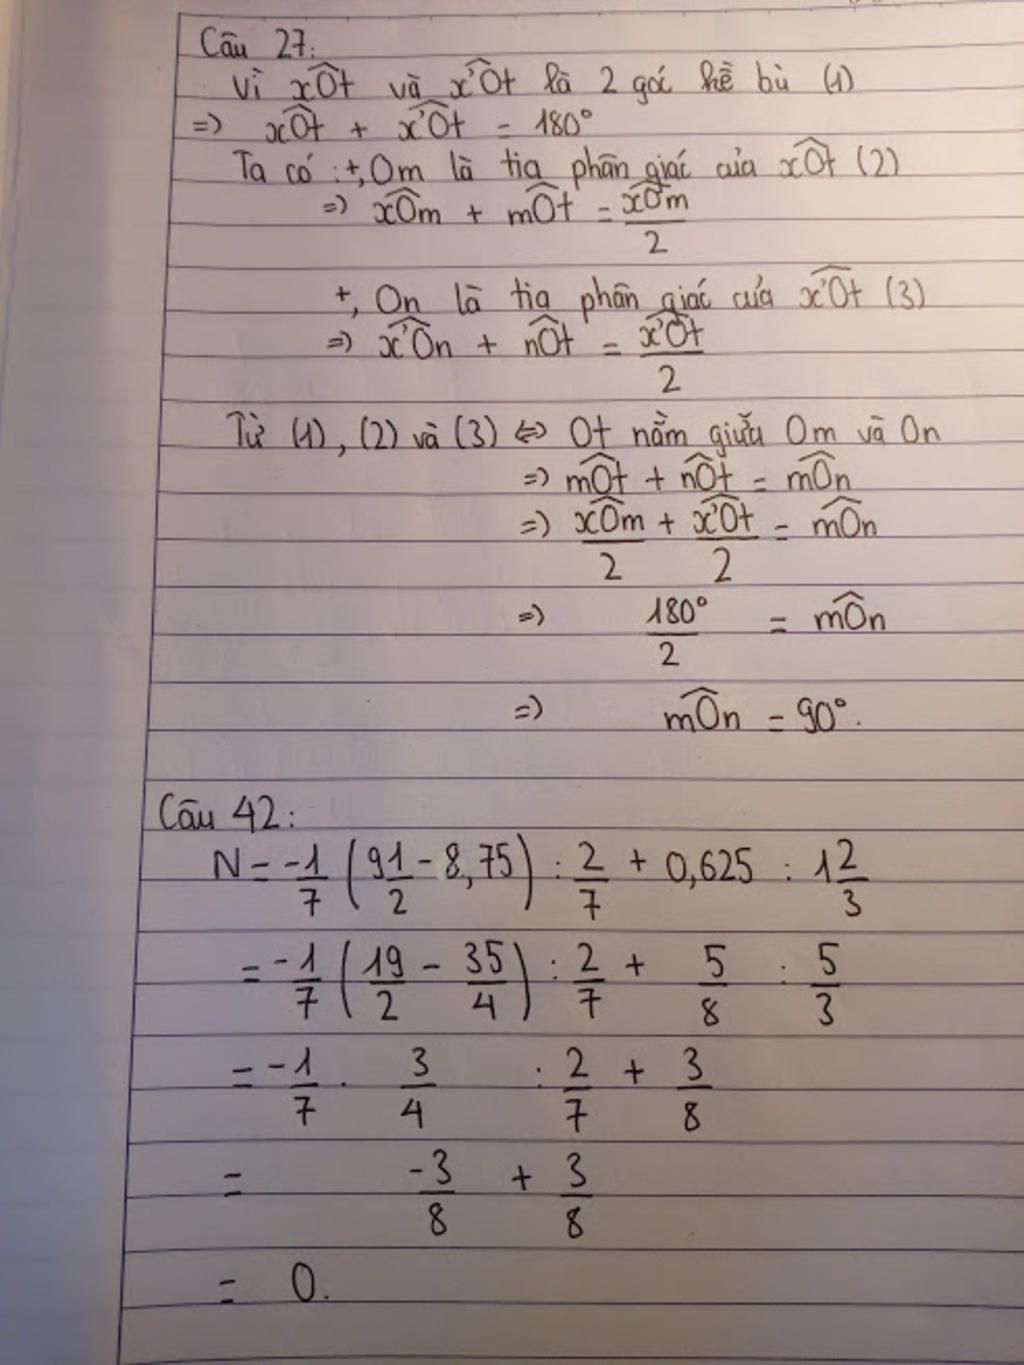 Câu 27:
Vì xÔt và x'Ôt là 2 góc kề bù (1)
=> xÔt + x'Ôt = 180°
Ta có : +, Om là tia phân giác của xÔt (2)
=> xÔm + mÔt = xÔm/2
+, On là tia phân giác của x'Ôt (3)
=> x'Ôn + nÔt = x'Ôt/2
Từ (1), (2) và (3) <=> Ot nằm giữa Om và On
=> mÔt + nÔt = mÔn
=> xÔm/2 + x'Ôt/2 = mÔn
=> 180°/2 = mÔn
=> mÔn = 90°.
Câu 42:
N = -1/7 (9 1/2 - 8,75) : 2/7 + 0,625 : 1 2/3
= -1/7 (19/2 - 35/4) : 2/7 + 5/8 : 5/3
= -1/7 . 3/4 : 2/7 + 3/8
= -3/8 + 3/8
= 0.